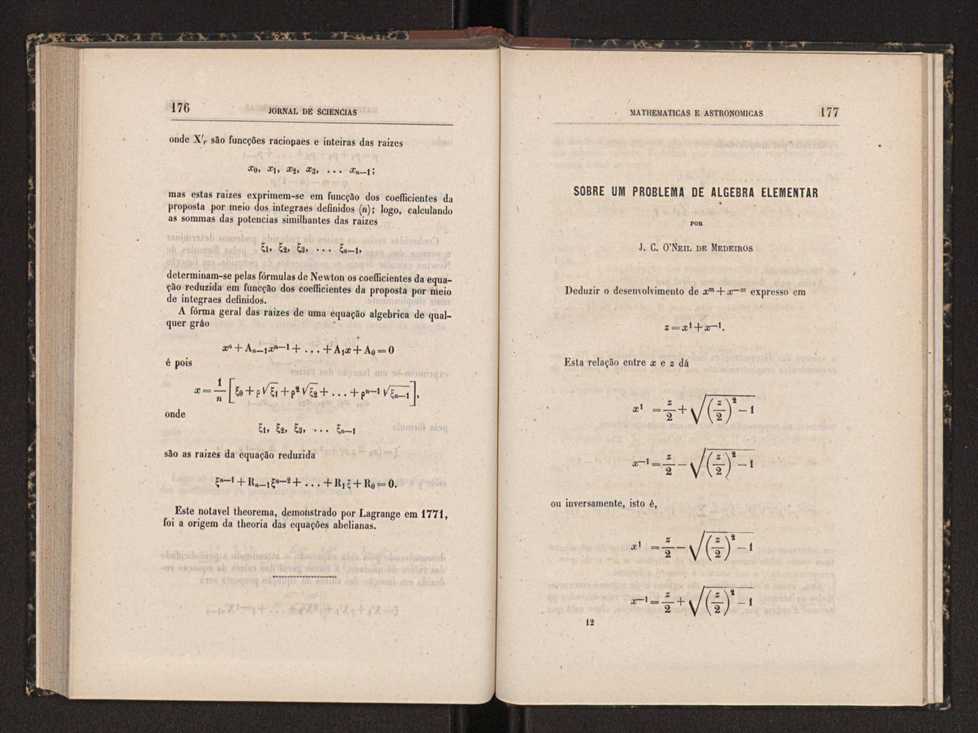 176
JORNAL DE SCIENCIAS
onde X′ᵣ são funcções raciopaes e inteiras das raizes
x₀, x₁, x₂, x₃, ... xₙ₋₁;
mas estas raizes exprimem-se em funcção dos coefficientes da
proposta por meio dos integraes definidos (n); logo, calculando
as sommas das potencias similhantes das raizes
ξ₁, ξ₂, ξ₃, ... ξₙ₋₁,
determinam-se pelas fórmulas de Newton os coefficientes da equa-
ção reduzida em funcção dos coefficientes da proposta por meio
de integraes definidos.
A fórma geral das raizes de uma equação algebrica de qual-
quer gráo
xⁿ + Aₙ₋₁xⁿ⁻¹ + ... + A₁x + A₀ = 0
é pois
x = 1/n [ξ₀ + ρ√ξ₁ + ρ²√ξ₂ + ... + ρⁿ⁻¹√ξₙ₋₁],
onde
ξ₁, ξ₂, ξ₃, ... ξₙ₋₁
são as raizes da equação reduzida
ξⁿ⁻¹ + Rₙ₋₁ξⁿ⁻² + ... + R₁ξ + R₀ = 0.
Este notavel theorema, demonstrado por Lagrange em 1771,
foi a origem da theoria das equações abelianas.
MATHEMATICAS E ASTRONOMICAS
177
SOBRE UM PROBLEMA DE ALGEBRA ELEMENTAR
POR
J. C. O'NEIL DE MEDEIROS
Deduzir o desenvolvimento de xᵐ + x⁻ᵐ expresso em
z = x¹ + x⁻¹.
Esta relação entre x e z dá
x¹ = z/2 + √((z/2)² − 1)
x⁻¹ = z/2 − √((z/2)² − 1)
ou inversamente, isto é,
x¹ = z/2 − √((z/2)² − 1)
x⁻¹ = z/2 + √((z/2)² − 1)
12